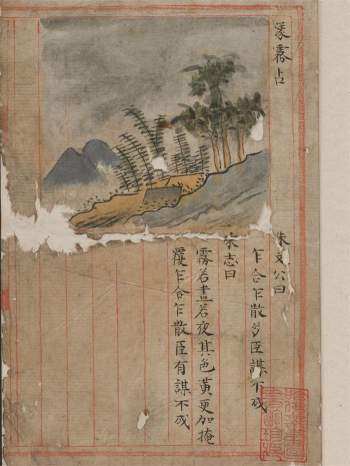 蒙霧占
朱文公曰
乍合乍散多臣謀不成
宋志曰
霧若晝若夜其色黃更相掩
覆乍合乍散臣有謀不成